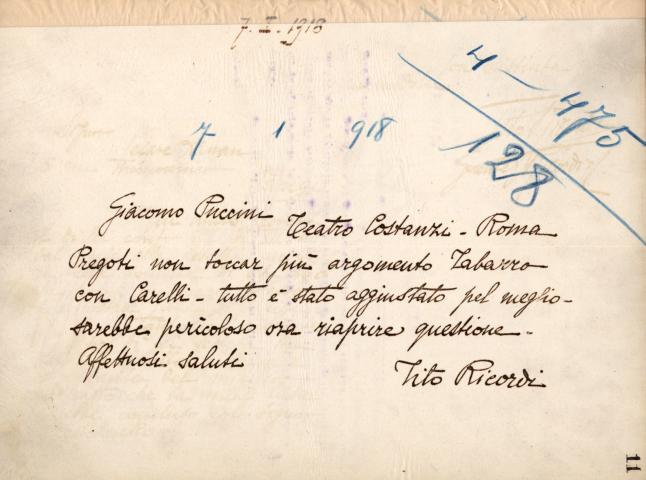 7. I. 1918
4 - 475
128
7 1 918
Giacomo Puccini
Teatro Costanzi - Roma
Pregoti non toccar più argomento Tabarro
con Carelli - tutto è stato aggiustato pel meglio -
sarebbe pericoloso ora riaprire questione -
Affettuosi saluti
Tito Ricordi
11